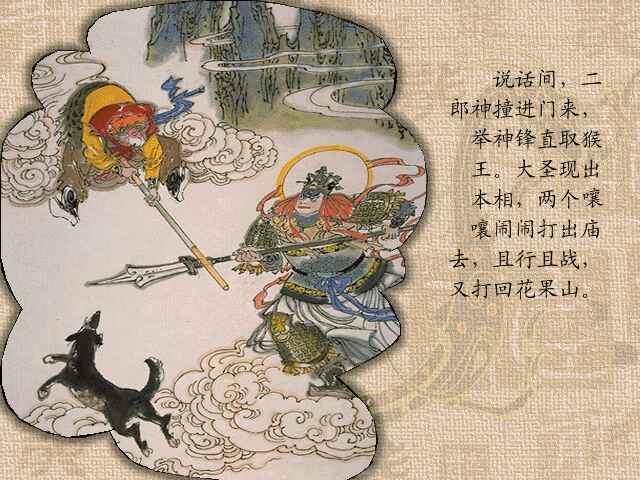 说话间，二
郎神撞进门来，
举神锋直取猴
王。大圣现出
本相，两个嚷
嚷闹闹打出庙
去，且行且战，
又打回花果山。